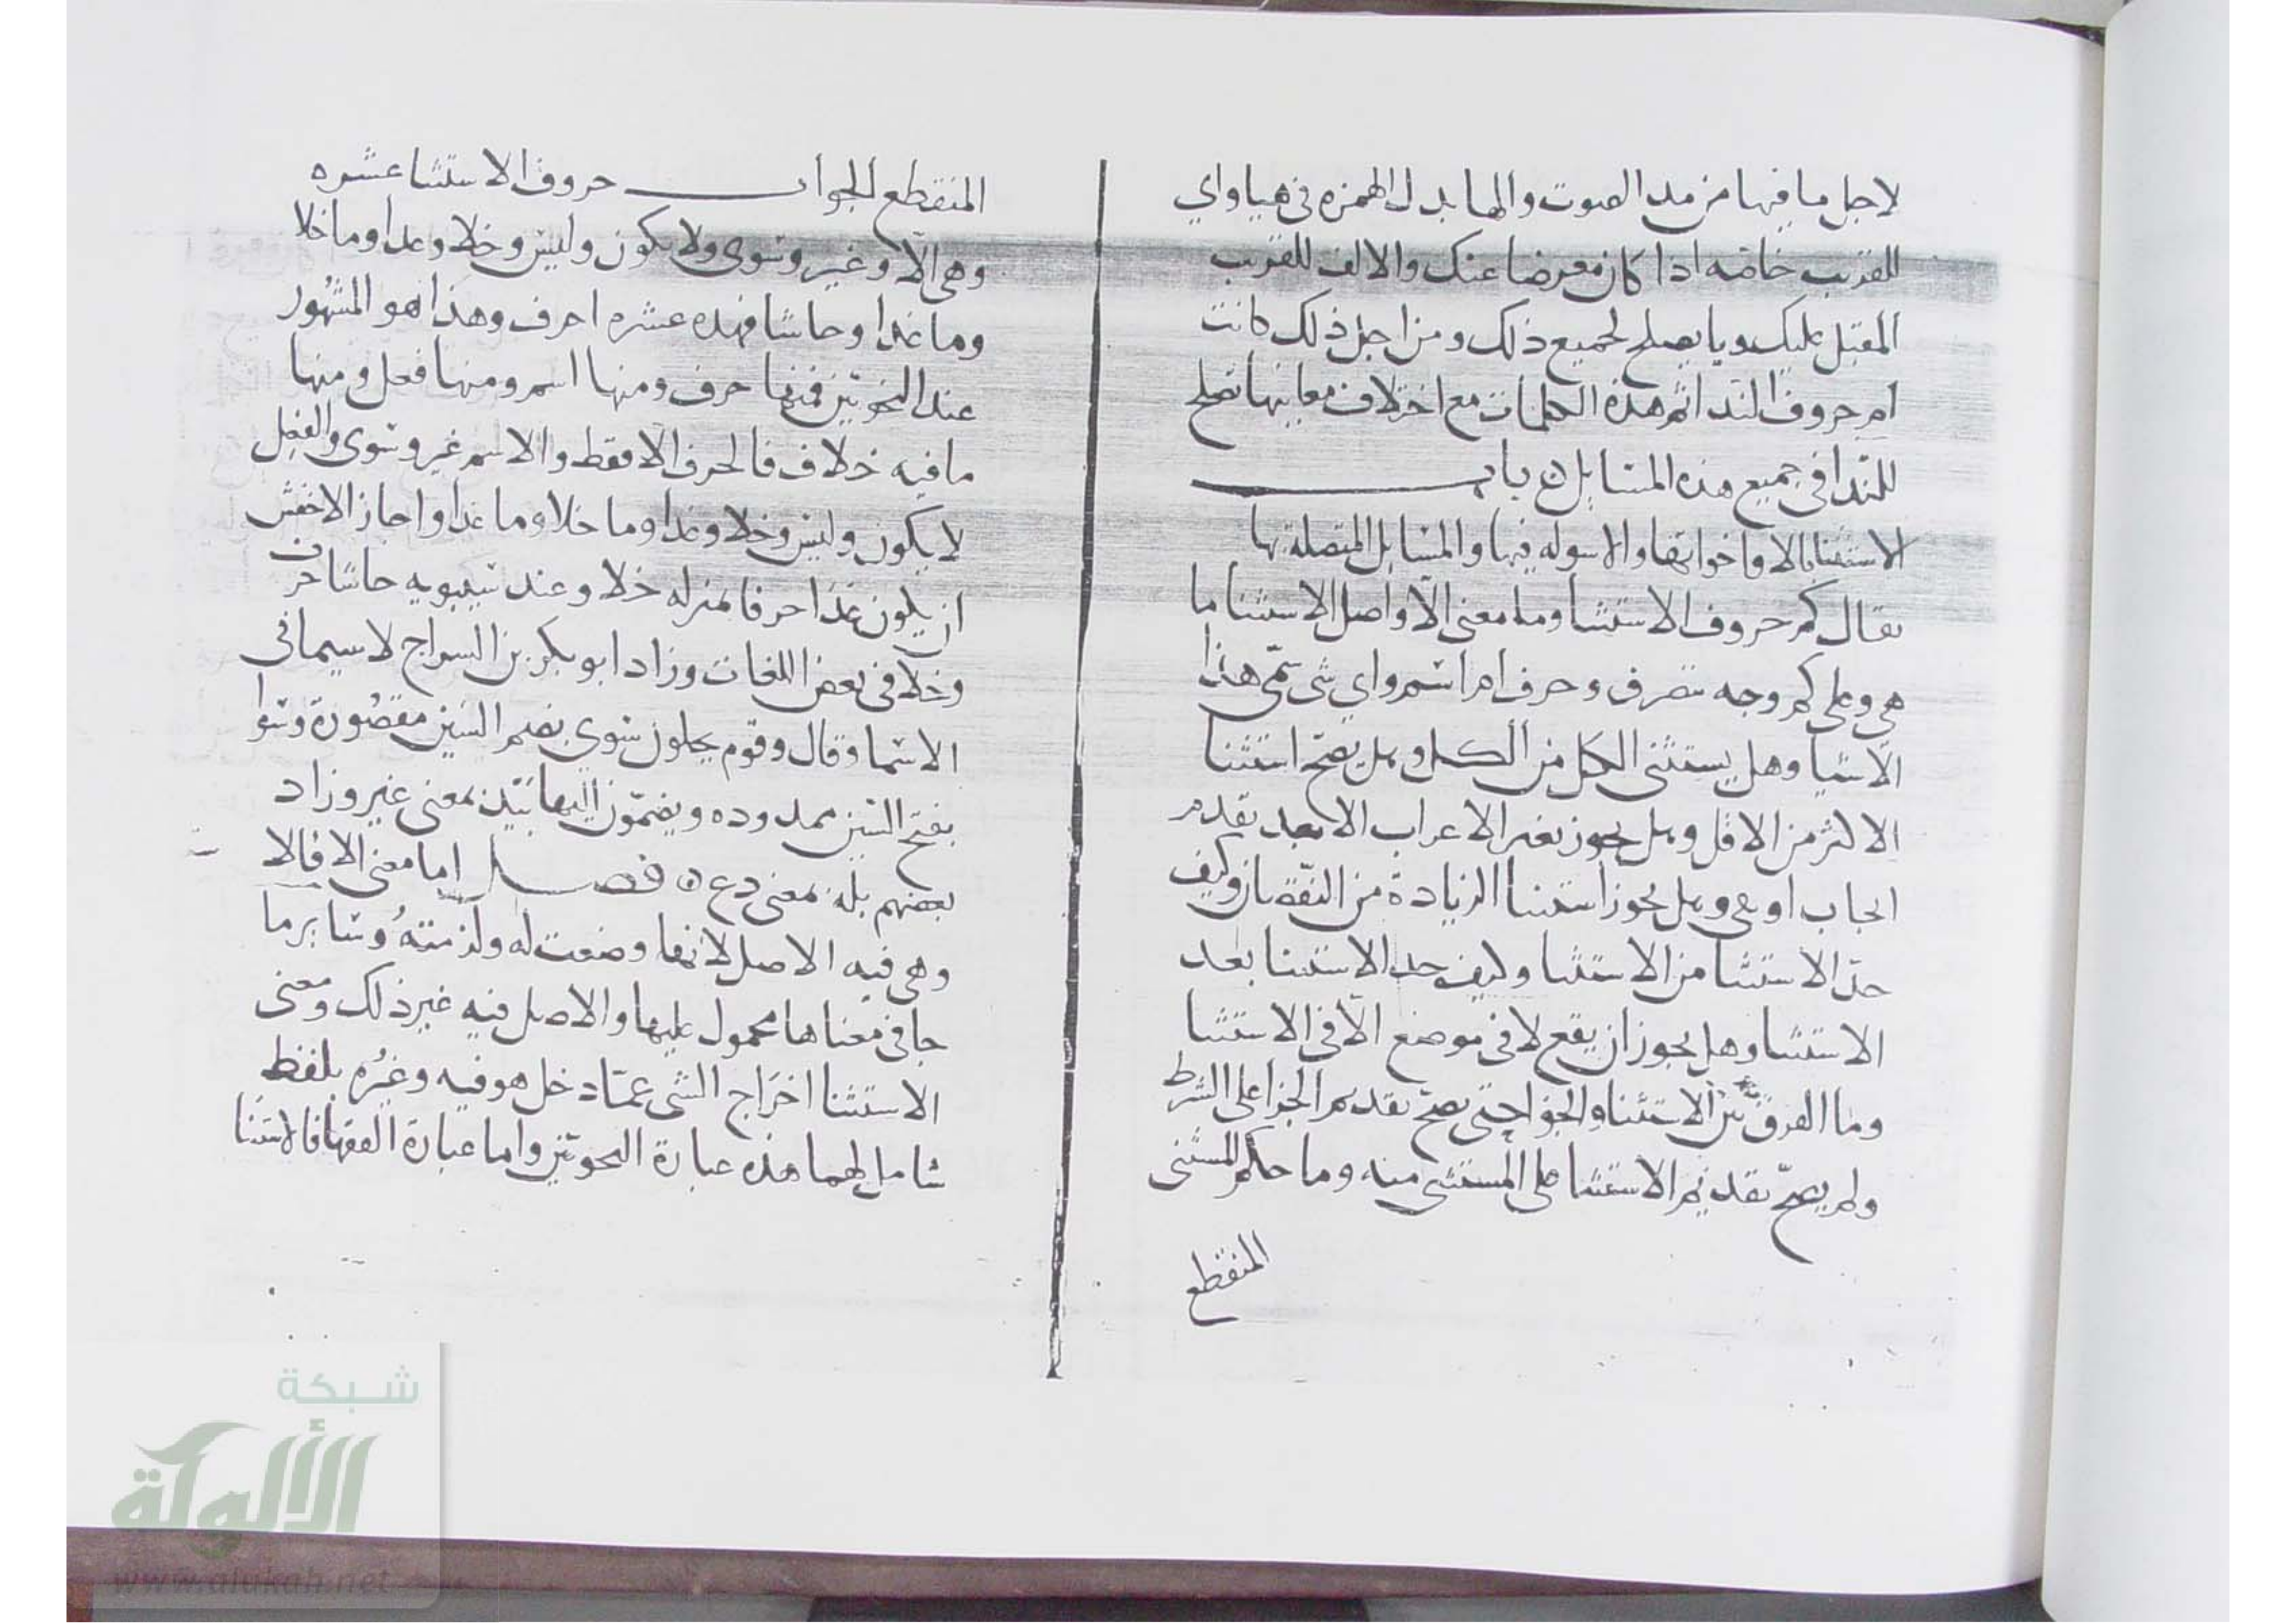 لاجل ما فيها من مد الصوت والها بدل الهمزه في هيا واي
للقريب خاصه اذا كان معرضا عنك والالف للقريب
المقبل عليك ويا يصلح لجميع ذلك ومن اجل ذلك كانت
ام حروف الندا ثم هذه الكلمات مع اختلاف معانيها تصلح
للندا في جميع هذه المسايل ن باب
الاستثنا بالا واخواتها والاسوله فيها والمسايل المتصلة بها
يقال كم حروف الاستثنا وما معنى الّا واصل الاستثنا ما
هي وعلى كم وجه تتصرف وحرف ام اسم واي شى سمّى هذا
الاستثنا وهل يستثنى الكل من الكل وهل يصح استثنا
الاكثر من الاقل وهل يجوز تغير الاعراب الا بعد تقدم
ايجاب او نفي وهل يجوز استثنا الزيادة من النقصان وكيف
حدّ الاستثنا من الاستثنا وكيف حد الاستثنا بعد
الاستثنا وهل يجوز ان يقع لا في موضع الّا في الاستثنا
وما الفرق بين الاستثنا والجزا حتى يصحّ تقديم الجزا على الشرط
ولم يصحّ تقديم الاستثنا على المستثنى منه وما حكم المستثنى
المنقطع
المنقطع الجواب حروف الاستثنا عشره
وهي الّا وغير وسوى ولا يكون وليس وخلا وعدا وما خلا
وما عدا وحاشا فهذه عشره احرف وهذا هو المشهور
عند النحويّين فمنها حرف ومنها اسم ومنها فعل ومنها
ما فيه خلاف فالحرف الا فقط والاسم غير وسوى والفعل
لا يكون وليس وخلا وعدا وما خلا وما عدا واجاز الاخفش
ان يكون عدا حرفا بمنزله خلا وعند سيبويه حاشا حرف
وخلا في بعض اللغات وزاد ابو بكر بن السراج لا سيما في
الاسما وقال وقوم يجعلون سوى بضم السين مقصورة وسوا
بفتح السين ممدوده ويضمّون اليها بَيْد بمعنى غير وزاد
بعضهم بله بمعنى دع ن فصل اما معنى الا فالا
وهى فيه الاصل لانها وضعت له ولزمته وساير ما
جا في معناها محمول عليها والاصل فيه غير ذلك ومعنى
الاستثنا اخراج الشى عمّا دخل هو فيه وغيره بلفظ
شامل لهما هذه عبارة النحويّين واما عبارة الفقها فالاستثنا
شبكة
الألوكة
www.alukah.net